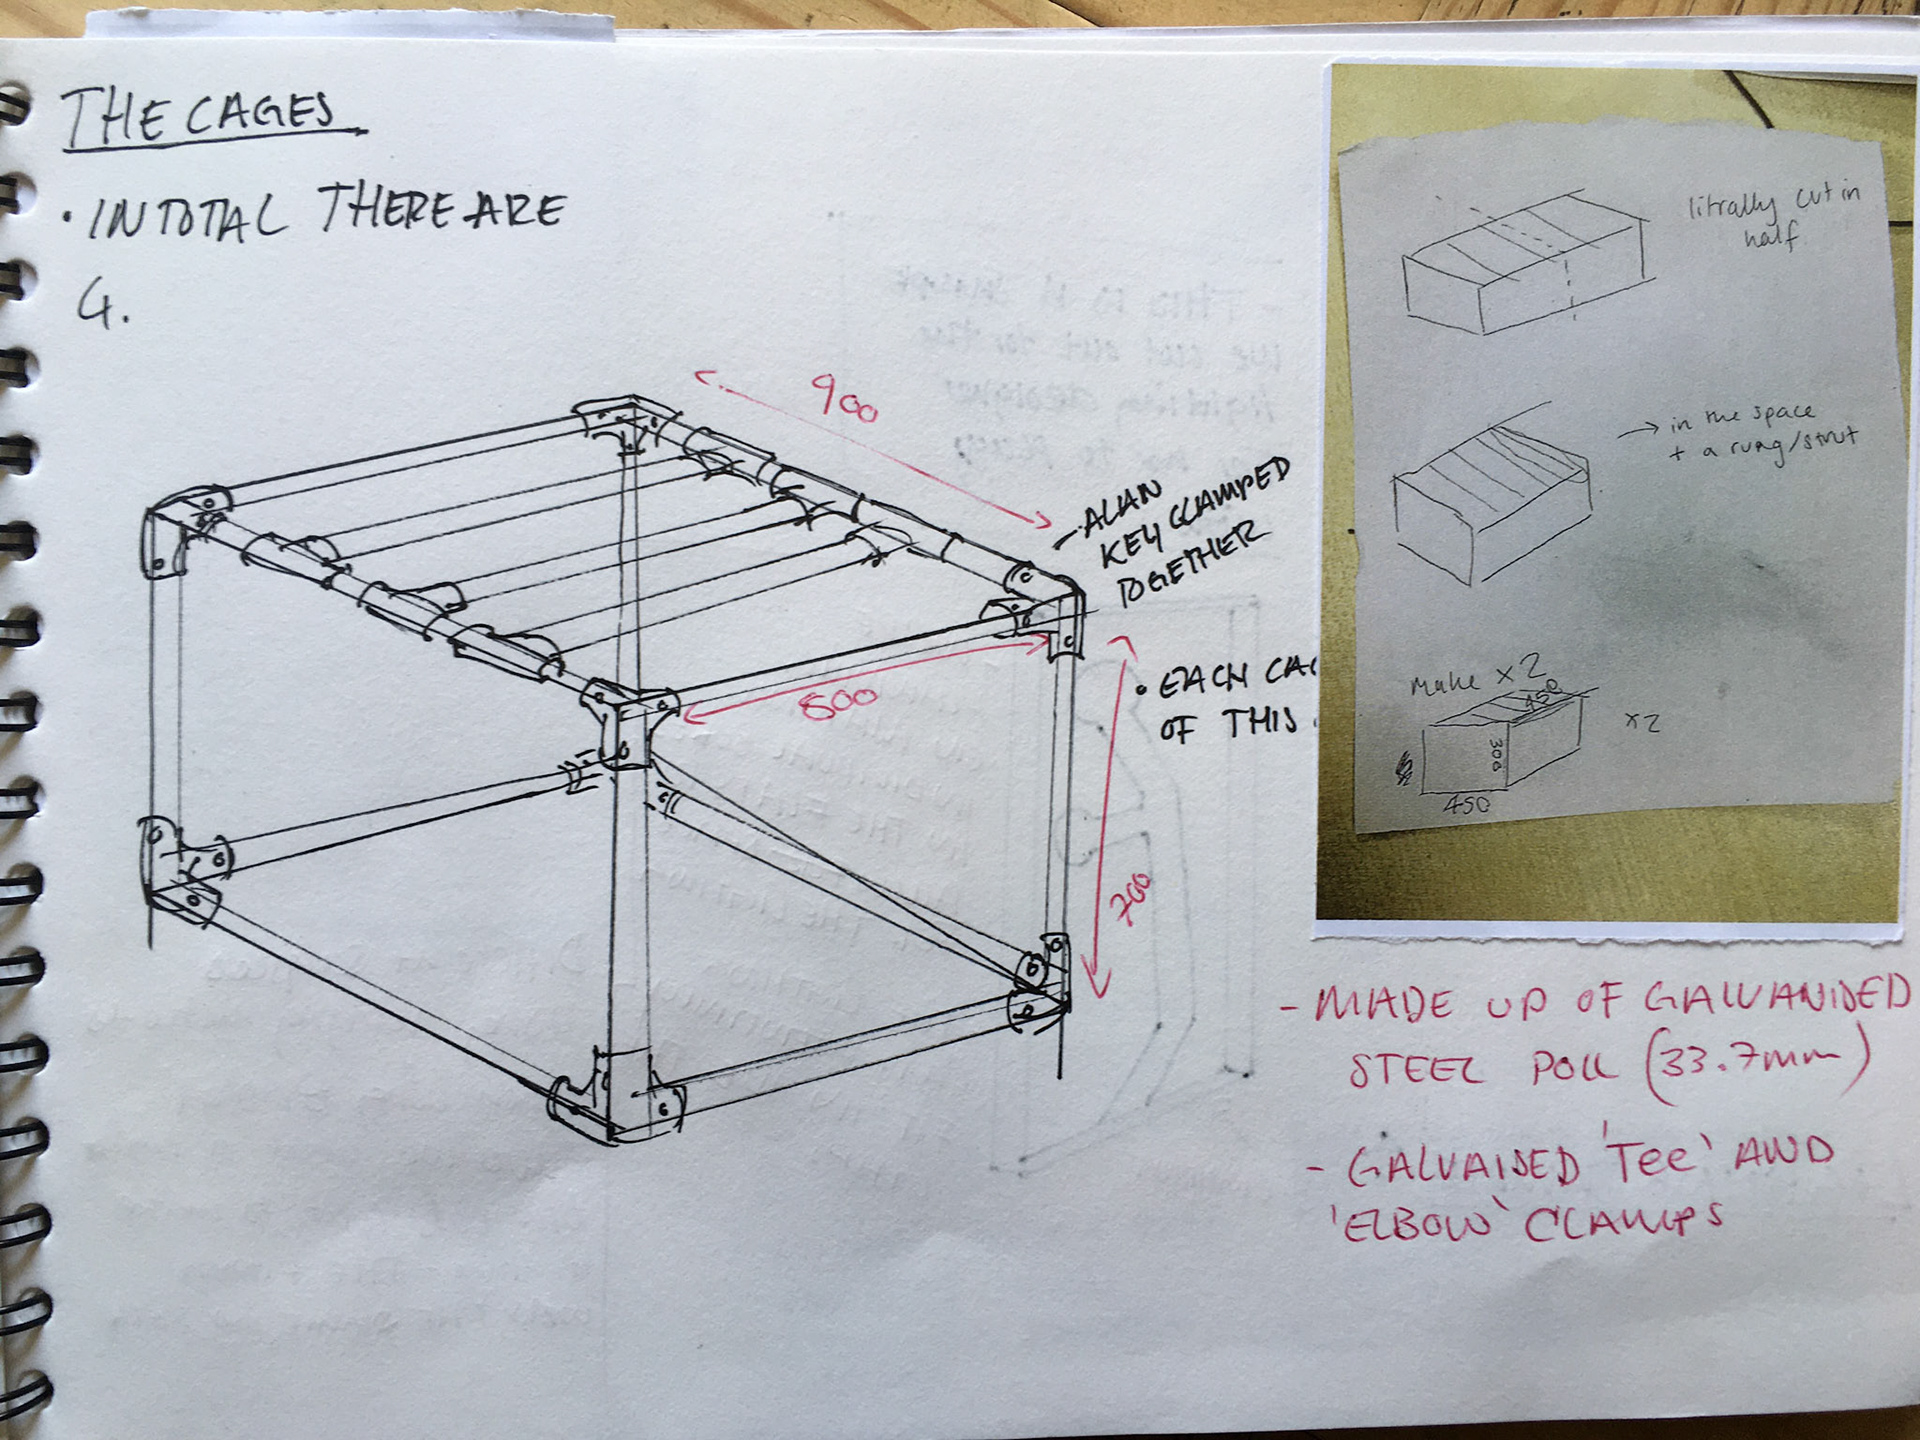 THE CAGES
• IN TOTAL THERE ARE
4.
900
- ALAN
KEY CLAMPED
TOGETHER
• EACH
OF THIS
700
litrally cut in
half
→ in the space
+ a rung/strut
make x2
450
300
450
x2
- MADE UP OF GALVANISED
STEEL POLL (33.7mm)
- GALVAISED 'Tee' AND
'ELBOW' CLAMPS